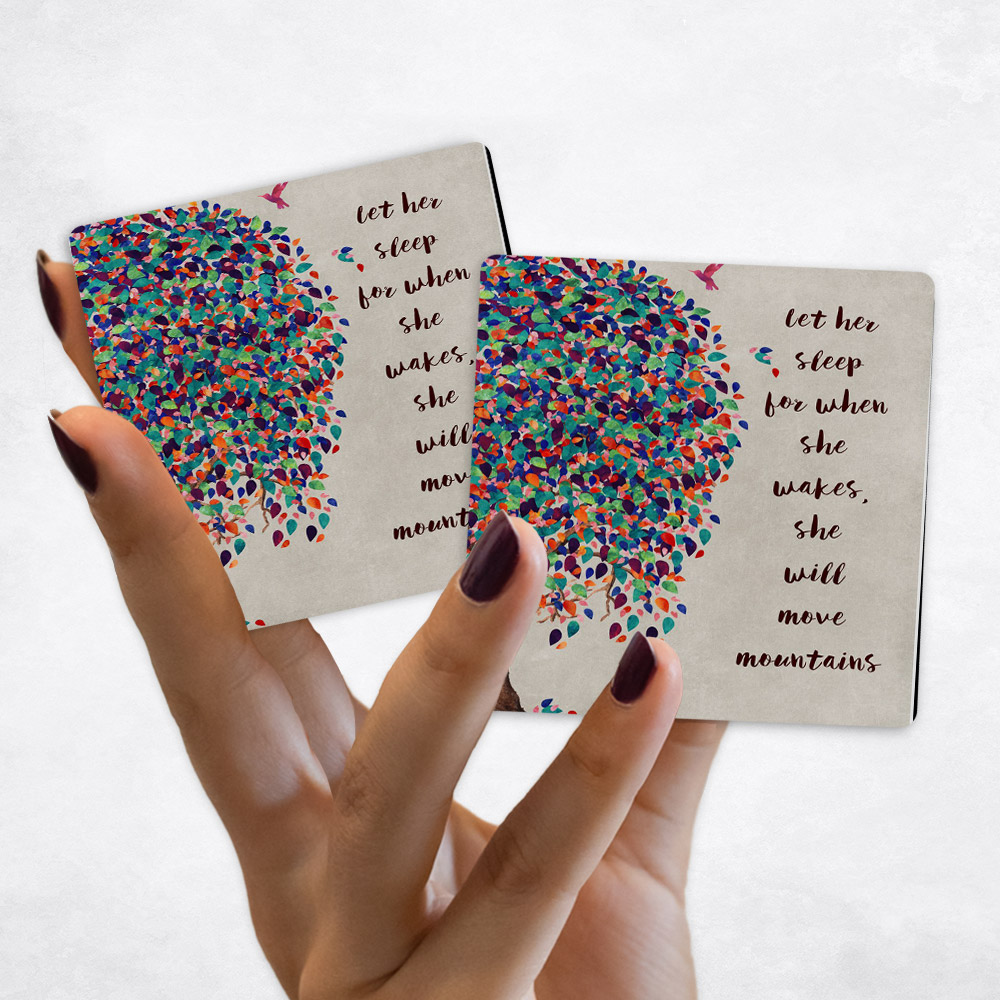 let her
sleep
for when
she
wakes,
she
will
mov
mount
let her
sleep
for when
she
wakes,
she
will
move
mountains